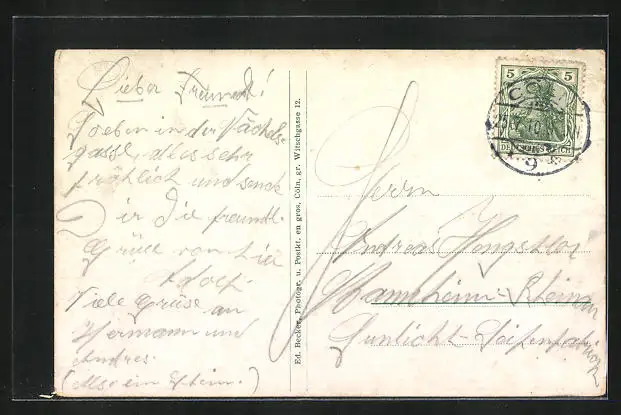 Lieber Freund!
Soeben in der Wächels-
gasse, alles sehr
fröhlich und sende
Dir die freundl.
Grüße von hier
Adolf.
Viele Grüse an
Hermann und
Andres.
(Also ein Stein.)
Ed. Becker, Photogr. u. Postkt. en gros, Cöln, gr. Witschgasse 12.
5 5
DEUTSCHES REICH
CÖLN
9
Herrn
Andreas
Mannheim-Rheinau
Sunlicht-Seifenfabrik